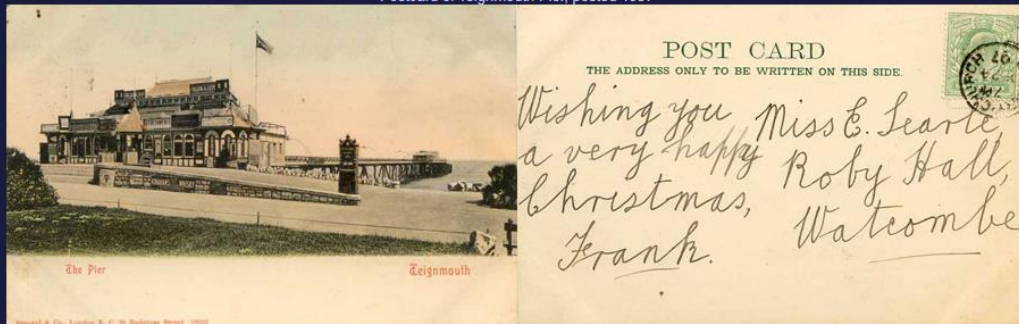 The Pier
Teignmouth
POST CARD
THE ADDRESS ONLY TO BE WRITTEN ON THIS SIDE.
Wishing you
a very happy
Christmas,
Frank.
Miss E. Searle,
Roby Hall,
Watcombe